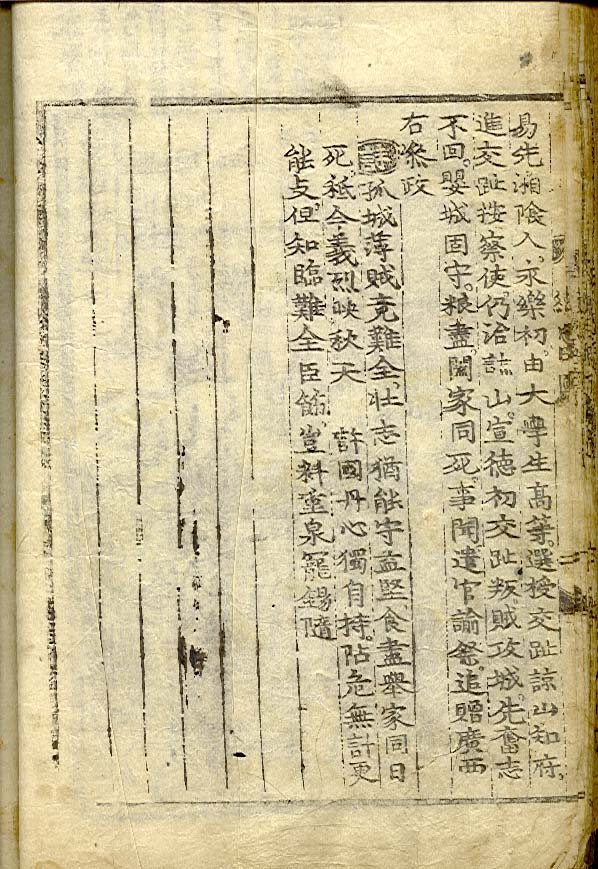 易先湘陰人。永樂初。由大學生高等。選授交趾諒山知府。
進交趾按察使仍治諒山。宣德初交趾叛賊攻城。先奮志
不回。嬰城固守。粮盡闔家同死。事聞遣官諭祭。追贈廣西
右叅政
詩孤城薄賊竟難全。壯志猶能守益堅食盡舉家同日
死。秪今義烈映秋天 許國丹心獨自持。阽危無計更
能支但知臨難全臣節。豈料重泉寵錫隨